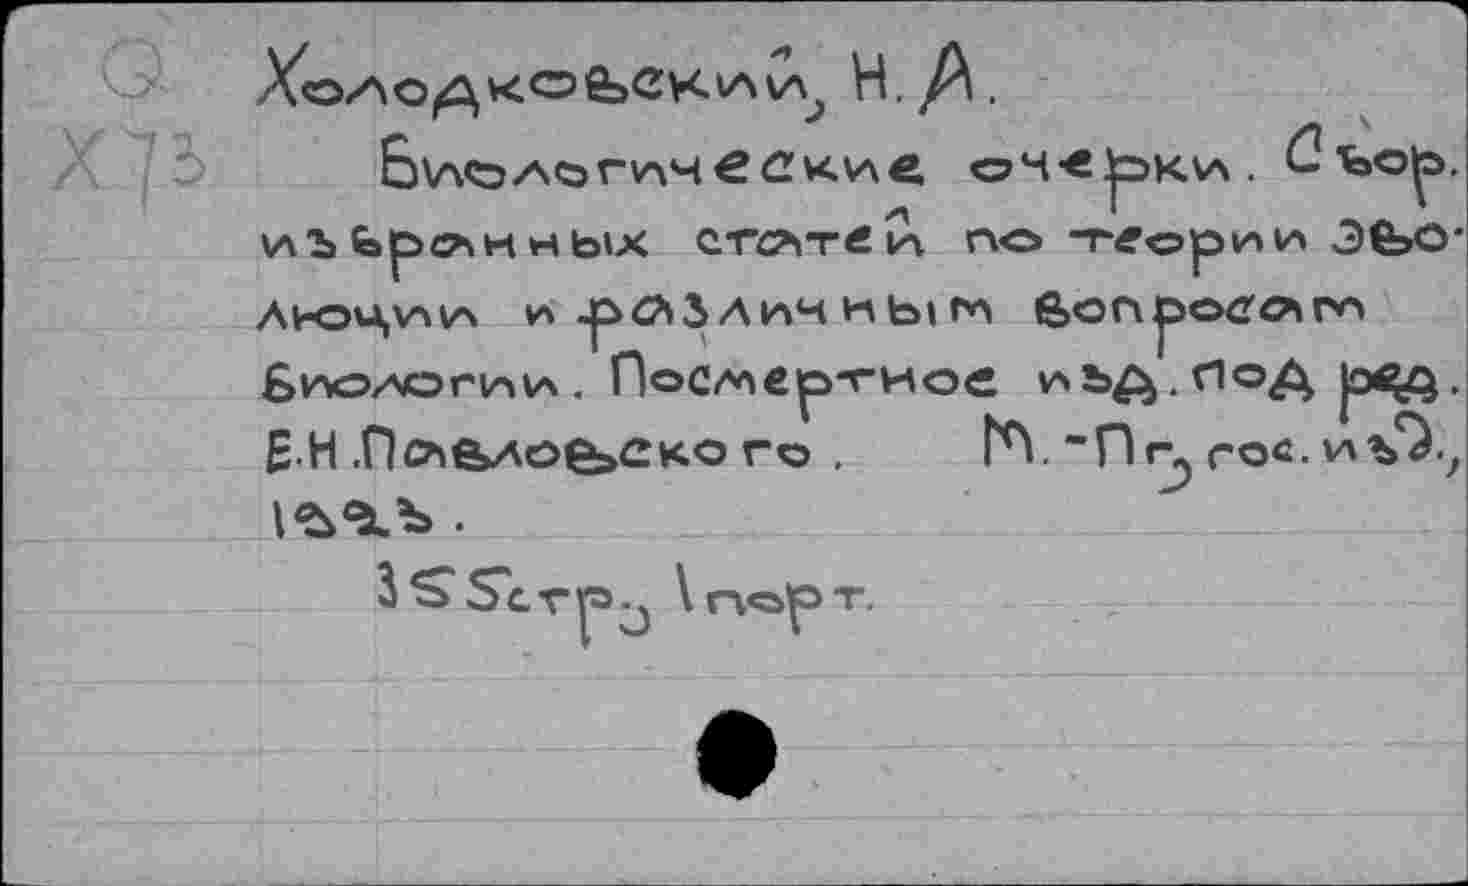 Холодковский, Н. А.
Х73
Биологические очерки. Сбор.
избранных статей по теории эво-
люции и различным вопросам
биологии. Посмертное изд. под ред.
Е.Н. Павловского. М.-Пг, гос. изд.,
1923.
355стр., 1 порт.